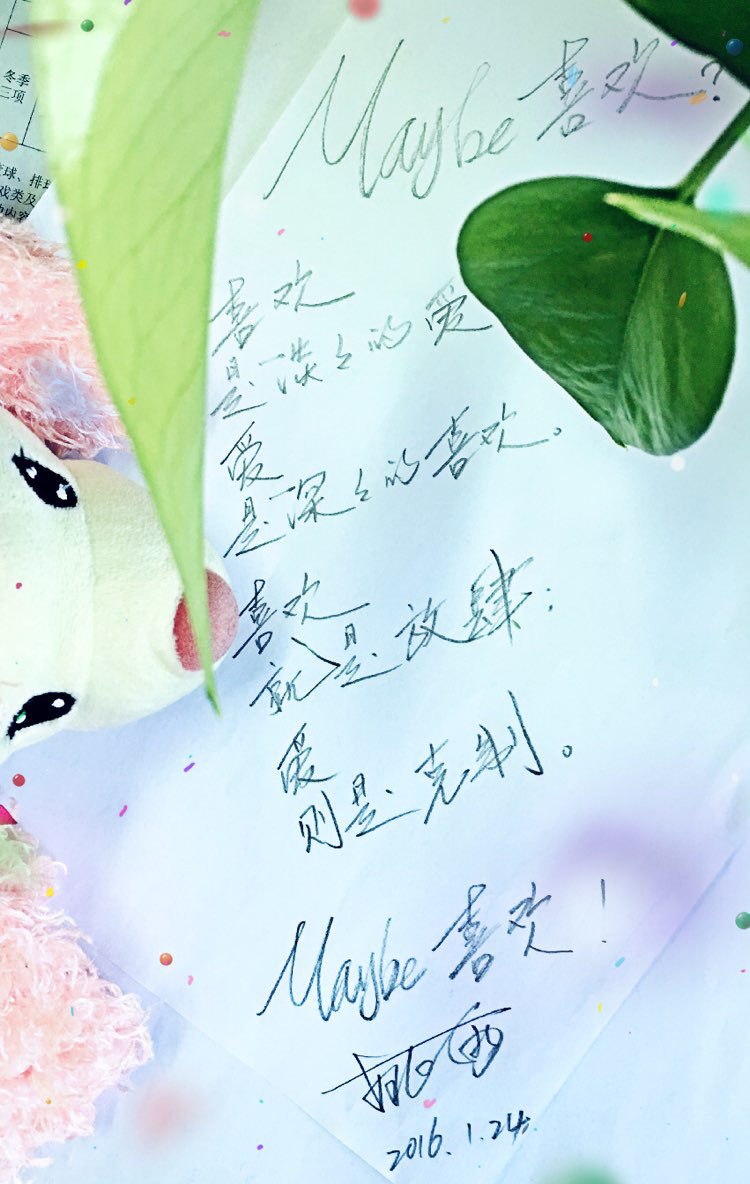 冬季
三项
球、排球
戏类及
Maybe喜欢?
喜欢
是淡々的爱
爱
是深々的喜欢。
喜欢
就是放肆;
爱
则是克制。
Maybe喜欢!
2016.1.24.